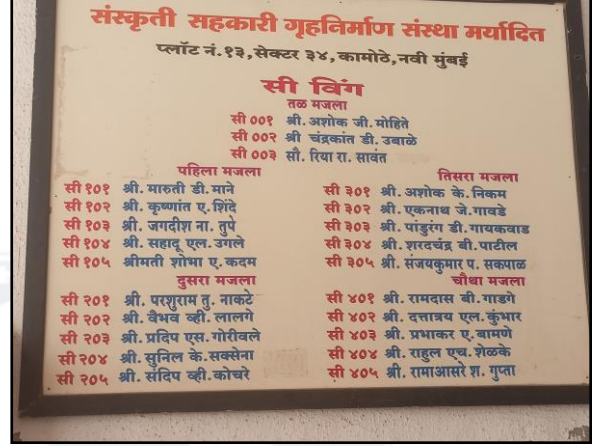 संस्कृती सहकारी गृहनिर्माण संस्था मर्यादित
प्लॉट नं.१३,सेक्टर ३४,कामोठे,नवी मुंबई
सी विंग
तळ मजला
सी ००१ श्री.अशोक जी.मोहिते
सी ००२ श्री चंद्रकांत डी.उबाळे
सी ००३ सौ.रिया रा.सावंत
पहिला मजला
सी १०१ श्री.मारुती डी.माने
सी १०२ श्री.कृष्णांत ए.शिंदे
सी १०३ श्री.जगदीश ना.तुपे
सी १०४ श्री.सहादू एल.उगले
सी १०५ श्रीमती शोभा ए.कदम
दुसरा मजला
सी २०१ श्री.परशुराम तु.नाकटे
सी २०२ श्री.वैभव व्ही.लालगे
सी २०३ श्री.प्रदिप एस.गोरीवले
सी २०४ श्री.सुनिल के.सक्सेना
सी २०५ श्री.संदिप व्ही.कोचरे
तिसरा मजला
सी ३०१ श्री.अशोक के.निकम
सी ३०२ श्री.एकनाथ जे.गावडे
सी ३०३ श्री.पांडुरंग डी.गायकवाड
सी ३०४ श्री.शरदचंद्र बी.पाटील
सी ३०५ श्री.संजयकुमार प.सकपाळ
चौथा मजला
सी ४०१ श्री.रामदास बी.गाडगे
सी ४०२ श्री.दत्तात्रय एल.कुंभार
सी ४०३ श्री.प्रभाकर ए.बामणे
सी ४०४ श्री.राहुल एच.शेळके
सी ४०५ श्री.रामाआसरे श.गुप्ता